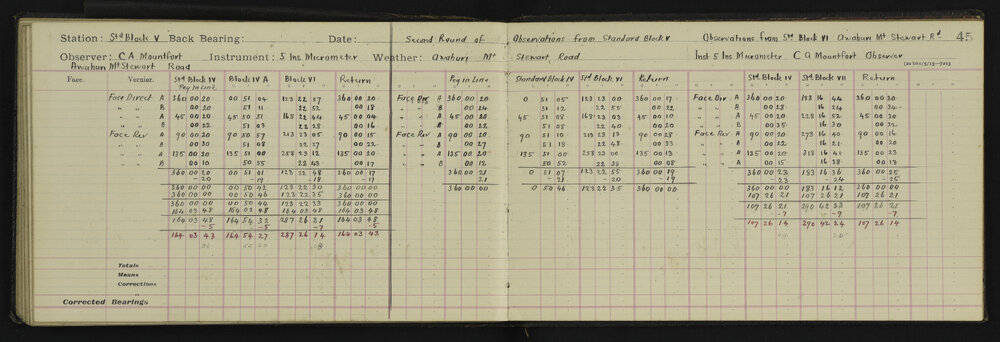 Station: Std Block V Back Bearing: Date: Second Round of Observations from Standard Block V Observations from Std Block VI Awaburi Mt Stewart Rd 45
Observer: C A Mountfort Instrument: 5 Ins Micrometer Weather: Awaburi Mt Stewart Road Inst 5 Ins Micrometer C A Mountfort Observer
Awaburi Mt Stewart Road
Face. Vernier. Std Block IV Block IV A Block VI Return Peg in Line Standard Block IV Std Block VI Return Std Block IV Std Block VII Return
Peg in Line
Face Direct A 360 00 20 00 51 04 123 22 57 360 00 20 Face Dir A 360 00 20 0 51 05 123 23 00 360 00 17 Face Dir A 360 00 20 183 16 44 360 00 20
" " B 00 22 51 11 22 52 00 18 " " B 00 24 51 12 22 50 00 22 " " B 00 28 16 24 00 30
" " A 45 00 20 45 50 51 168 22 44 45 00 04 " " A 45 00 20 45 51 08 168 23 03 45 00 10 " " A 45 00 20 228 16 52 45 00 30
" " B 00 22 51 03 22 28 00 16 " " B 00 22 51 08 22 40 00 20 " " B 00 22 16 35 00 32
Face Rev A 90 00 20 90 50 57 213 23 05 90 00 15 Face Rev A 90 00 20 90 51 10 213 23 17 90 00 28 Face Rev A 90 00 20 273 16 40 90 00 16
" " B 00 30 51 08 22 27 00 22 " " B 00 27 51 18 22 48 00 33 " " B 00 22 16 21 00 20
" " A 135 00 20 135 51 00 258 23 12 135 00 20 " " A 135 00 20 135 51 00 258 23 00 135 00 13 " " A 135 00 20 318 16 41 135 00 23
B 00 10 50 55 22 43 00 17 B 00 12 50 52 22 38 00 08 A 00 15 16 38 00 13
360 00 20 00 51 01 123 22 48 360 00 17 360 00 21 0 51 07 123 22 55 360 00 19 360 00 23 183 16 36 360 00 25
-20 -19 -18 -17 21 -21 -20 -19 -23 -24 -25
360 00 00 00 50 42 123 22 30 360 00 00 360 00 00 0 50 46 123 22 35 360 00 00 360 00 00 183 16 12 360 00 00
360 00 00 00 50 46 123 22 35 360 00 00 107 26 21 107 26 21 107 26 21
360 00 00 00 50 44 123 22 33 360 00 00 107 26 21 290 42 33 107 26 21
164 03 48 164 03 48 164 03 48 164 03 48 -7 -9 -7
164 03 48 164 54 32 287 26 21 164 03 48 107 26 14 290 42 24 107 26 14
-5 -5 -7 -5
164 03 43 164 54 27 287 26 14 164 03 43
Totals
Means
Corrections
Corrected Bearings